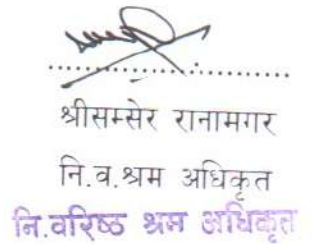 श्रीसम्सेर रानामगर
नि.व.श्रम अधिकृत
नि.वरिष्ठ श्रम अधिकृत